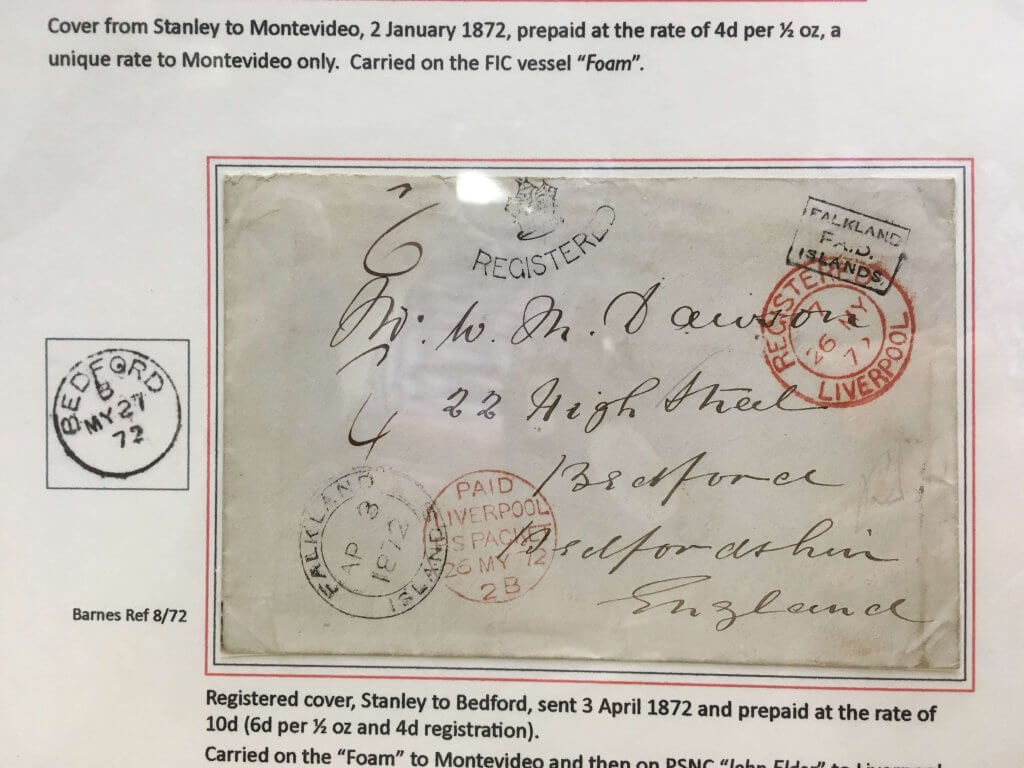 Cover from Stanley to Montevideo, 2 January 1872, prepaid at the rate of 4d per ½ oz, a
unique rate to Montevideo only. Carried on the FIC vessel “Foam”.
6
REGISTERED
FALKLAND
PAID.
ISLANDS.
REGISTERED
LIVERPOOL
26 MY
Mr. W. M. Dawson
22 High Street
4
Bedford
Bedfordshire
England
FALKLAND ISLANDS
AP 3
1872
PAID
LIVERPOOL
US PACKET
26 MY 72
2B
BEDFORD
B
MY 27
72
Barnes Ref 8/72
Registered cover, Stanley to Bedford, sent 3 April 1872 and prepaid at the rate of
10d (6d per ½ oz and 4d registration).
Carried on the “Foam” to Montevideo and then on PSNC “John Elder” to Liverpool